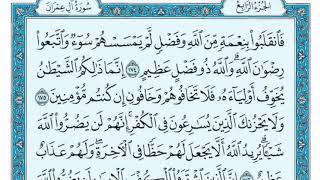 الجزء الرابع
سورة آل عمران
فَٱنقَلَبُوا۟ بِنِعْمَةٍ مِّنَ ٱللَّهِ وَفَضْلٍ لَّمْ يَمْسَسْهُمْ سُوٓءٌ وَٱتَّبَعُوا۟
رِضْوَٰنَ ٱللَّهِ وَٱللَّهُ ذُو فَضْلٍ عَظِيمٍ ١٧٤ إِنَّمَا ذَٰلِكُمُ ٱلشَّيْطَٰنُ
يُخَوِّفُ أَوْلِيَآءَهُۥ فَلَا تَخَافُوهُمْ وَخَافُونِ إِن كُنتُم مُّؤْمِنِينَ ١٧٥
وَلَا يَحْزُنكَ ٱلَّذِينَ يُسَٰرِعُونَ فِى ٱلْكُفْرِ إِنَّهُمْ لَن يَضُرُّوا۟ ٱللَّهَ
شَيْـًٔا يُرِيدُ ٱللَّهُ أَلَّا يَجْعَلَ لَهُمْ حَظًّا فِى ٱلْـَٔاخِرَةِ وَلَهُمْ عَذَابٌ